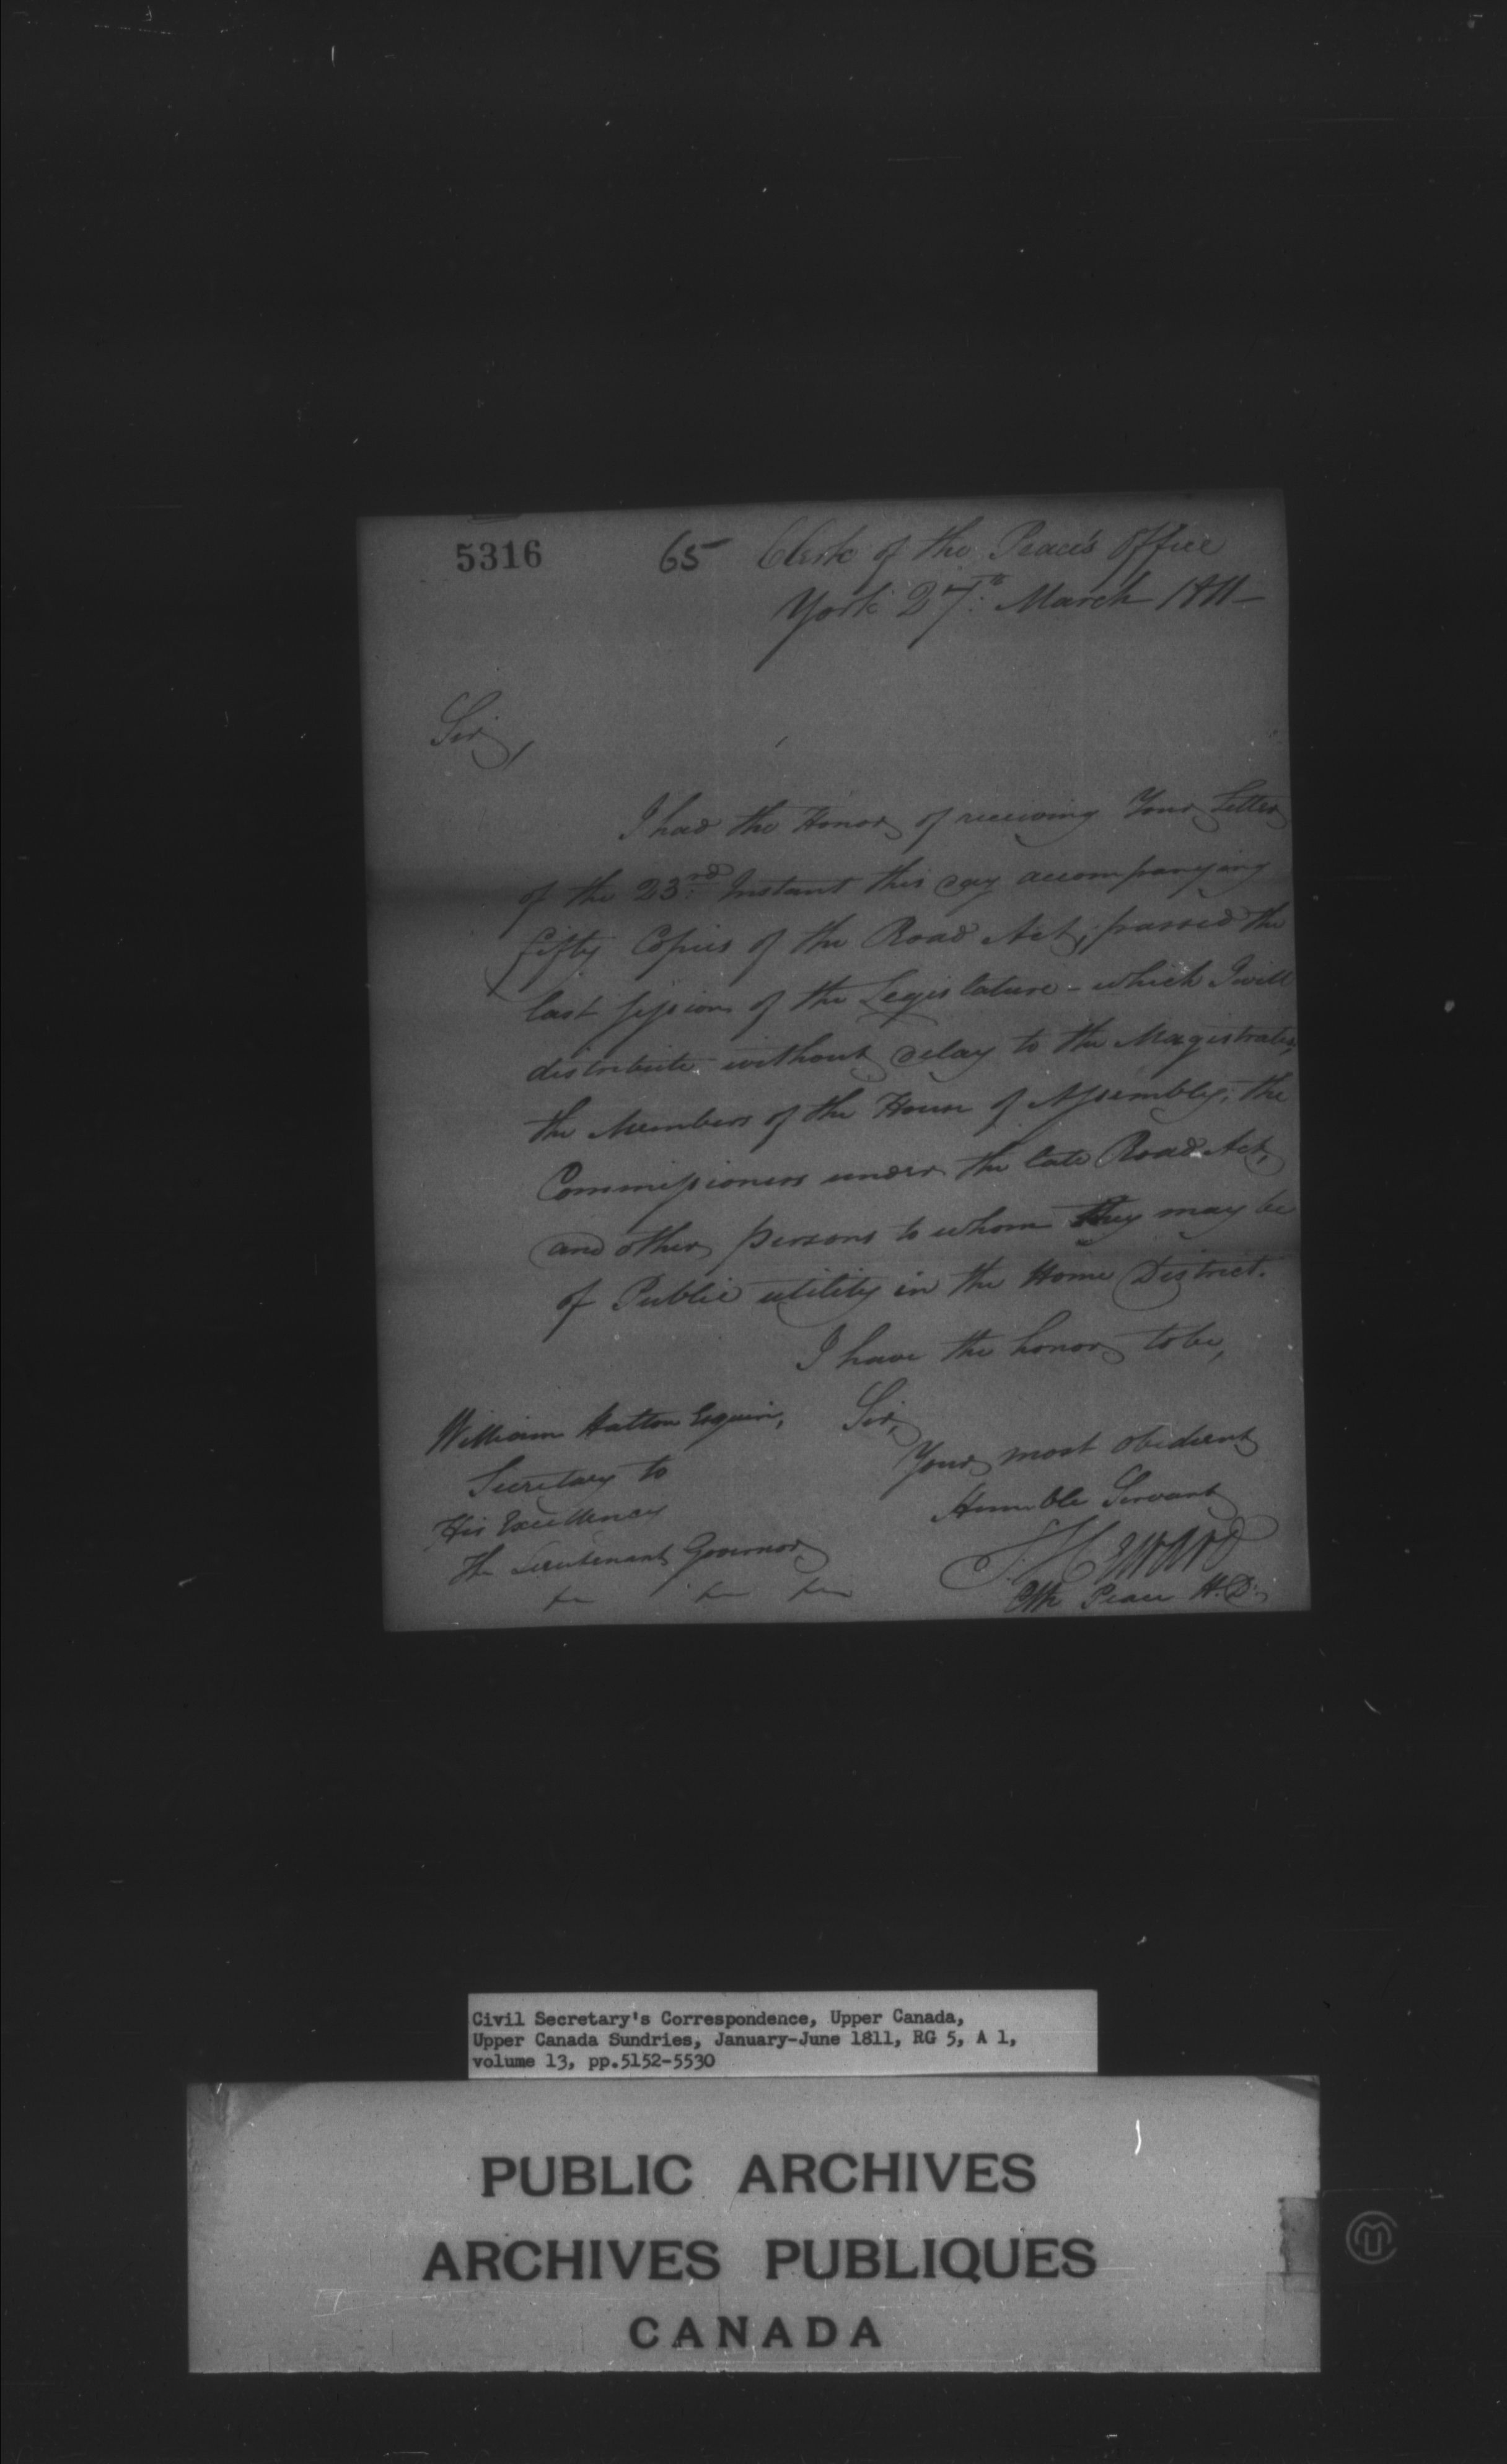 5316 65 Clerk of the Peace's Office
York 27th: March 1811—
Sir,
I had the Honor of receiving Your Letter
of the 23rd. Instant this day accompanying
fifty Copies of the Road Act, passed the
last session of the Legislature - which I will
distribute without delay to the Magistrates,
the Members of the House of Assembly, the
Commissioners under the late Road Act,
and other persons to whom they may be
of Public utility in the Home District.
I have the honor to be,
Sir,
Your most obedient
Humble Servant
S. Heward
Clk Peace H.D.
William Halton Esquire,
Secretary to
His Excellency
The Lieutenant Governor
Civil Secretary's Correspondence, Upper Canada,
Upper Canada Sundries, January-June 1811, RG 5, A 1,
volume 13, pp.5152-5530
PUBLIC ARCHIVES
ARCHIVES PUBLIQUES
CANADA